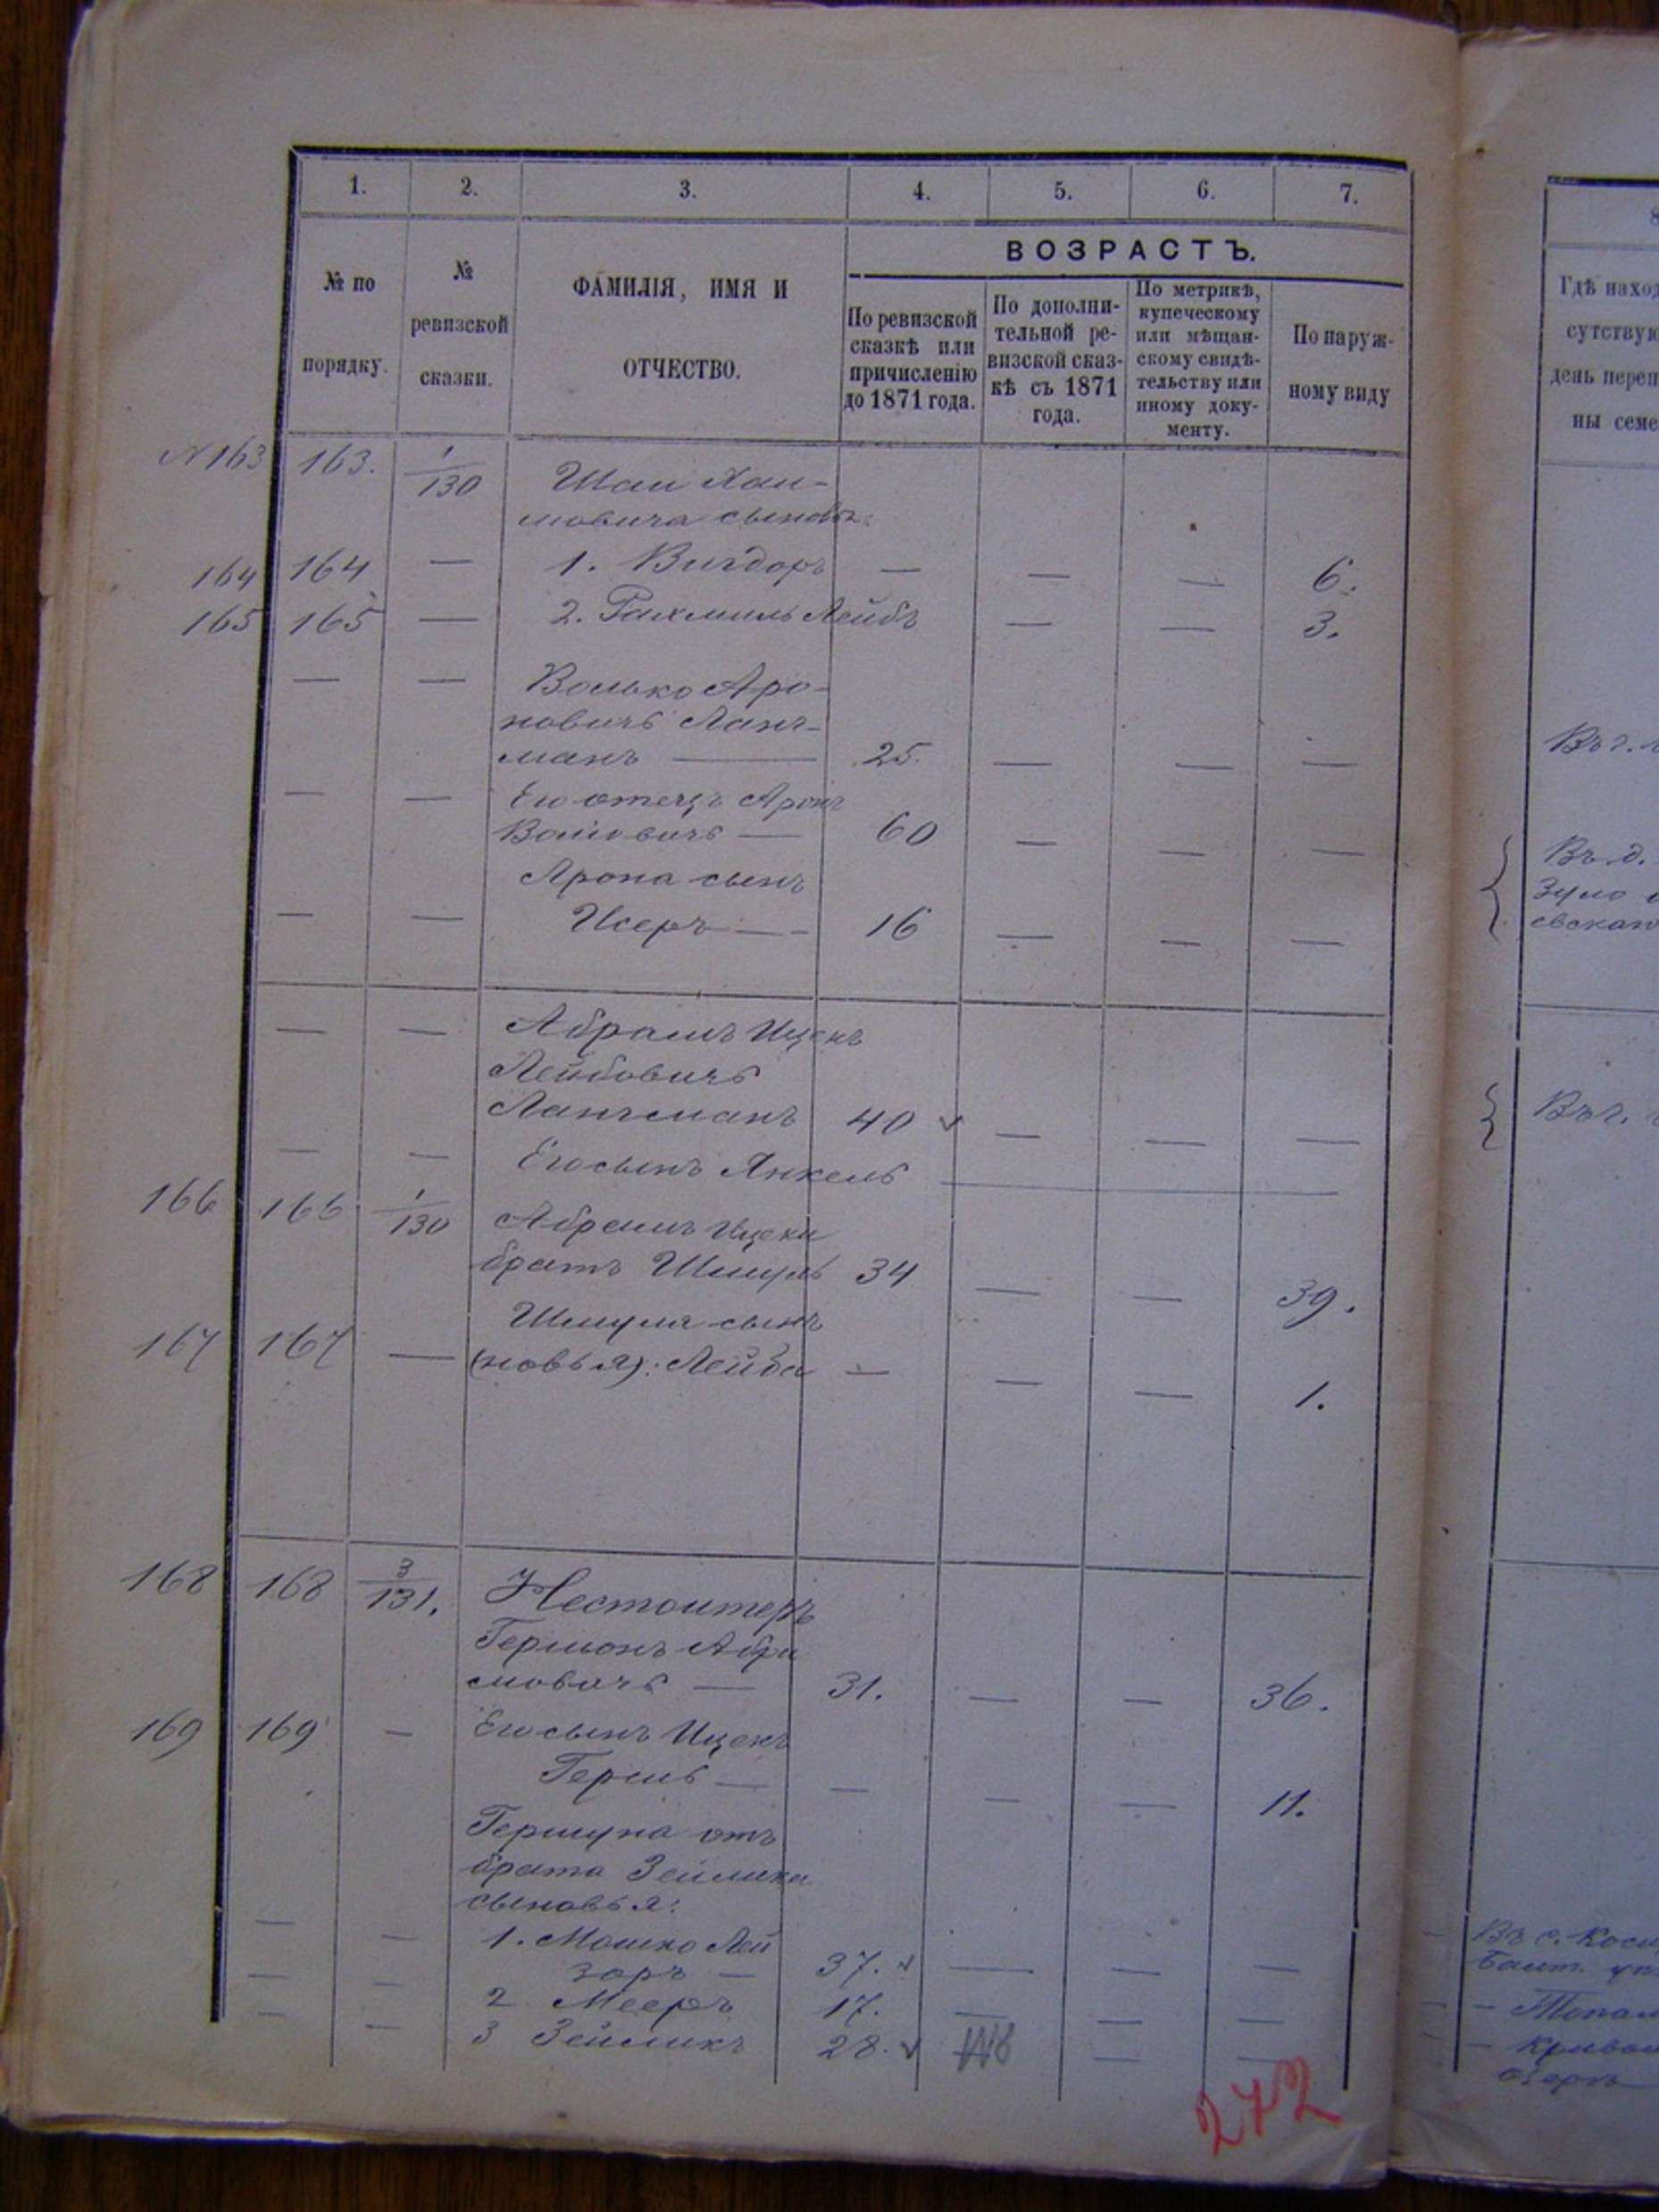 1. 2. 3. 4. 5. 6. 7.
№ по порядку.
№ ревизской сказки.
ФАМИЛІЯ, ИМЯ И ОТЧЕСТВО.
ВОЗРАСТЪ.
По ревизской сказкѣ или причисленію до 1871 года.
По дополнительной ревизской сказкѣ съ 1871 года.
По метрикѣ, купеческому или мѣщанскому свидѣтельству или иному документу.
По наружному виду
N163 163. 1/130 Шаи Хаи-
мовича сыновья:
164 164 — 1. Вигдоръ — — — 6.
165 165 — 2. Рахмиль Лейбъ — — 3.
— — Волько Аро-
новичъ Ланг-
манъ — 25. — — —
— — Его отецъ Аронъ
Волковичъ — 60 — — —
Арона сынъ
— — Исеръ — 16 — — —
— — Абрамъ Ицекъ
Лейбовичъ
Лангманъ 40 — — —
— — Его сынъ Янкель —
166 166 1/130 Абрамъ Ицека
братъ Шмуль 34 — — 39.
Шмуля сынъ
167 167 — (новья): Лейба — — — 1.
168 168 3/131. Нестоитеръ
Гершонъ Абра
мовичъ — 31. — — 36.
169 169 — Его сынъ Ицекъ
Гершь — — — — 11.
Гершуна отъ
брата Зейлика
сыновья:
— — 1. Мошко Лей
зоръ — 37. — — —
— — 2 Мееръ 17. — — —
— — 3 Зейликъ 28. — —
272
8
Гдѣ наход
сутствую
день переп
ны семе
Въ г.
Въ д.
Въ г.
Въ с.